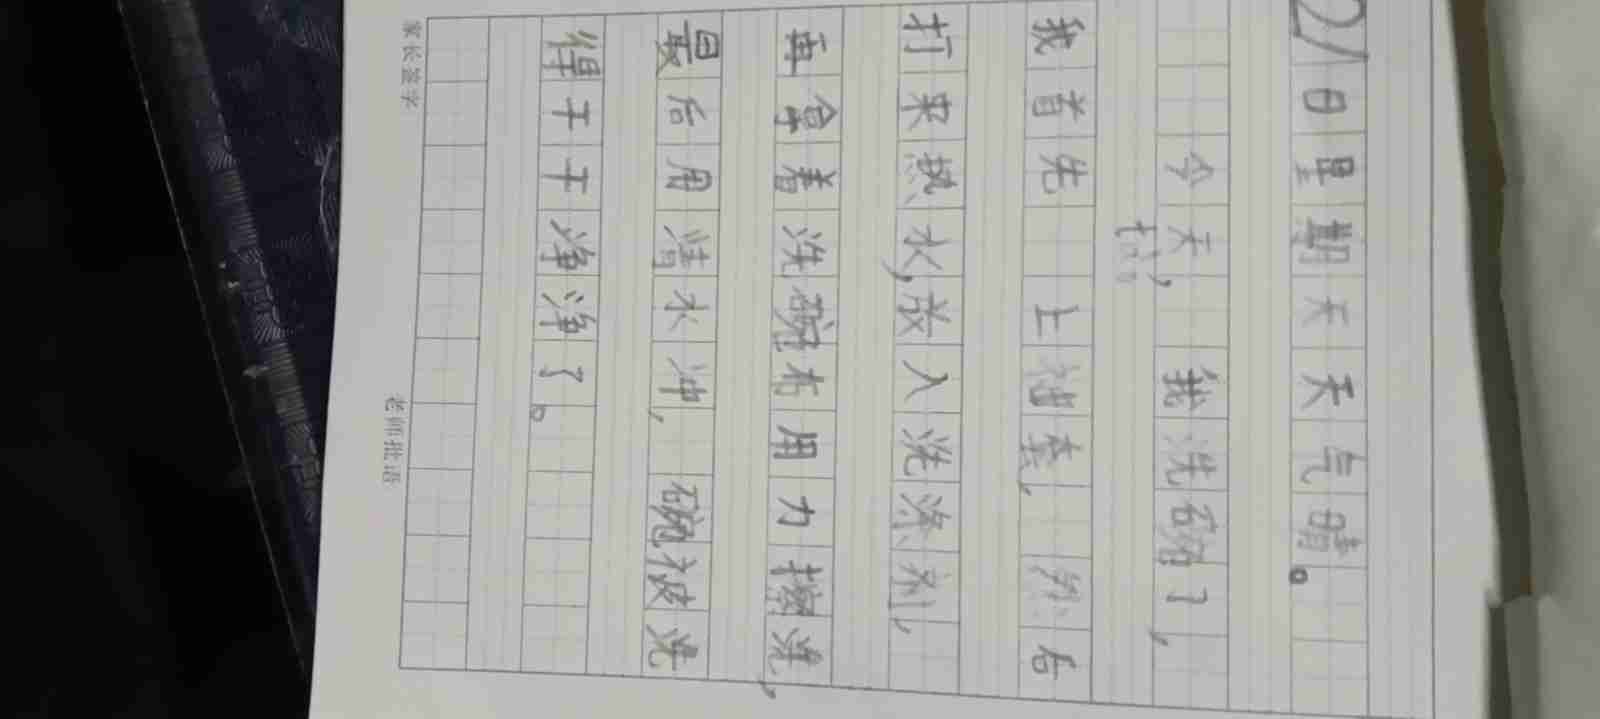 21日星期天天气晴。
今天，我洗碗了，
我首先 上袖套，然后
打来热水，放入洗涤剂，
再拿着洗碗布用力擦洗，
最后用清水冲，碗被洗
得干干净净了。
家长签字 老师批语